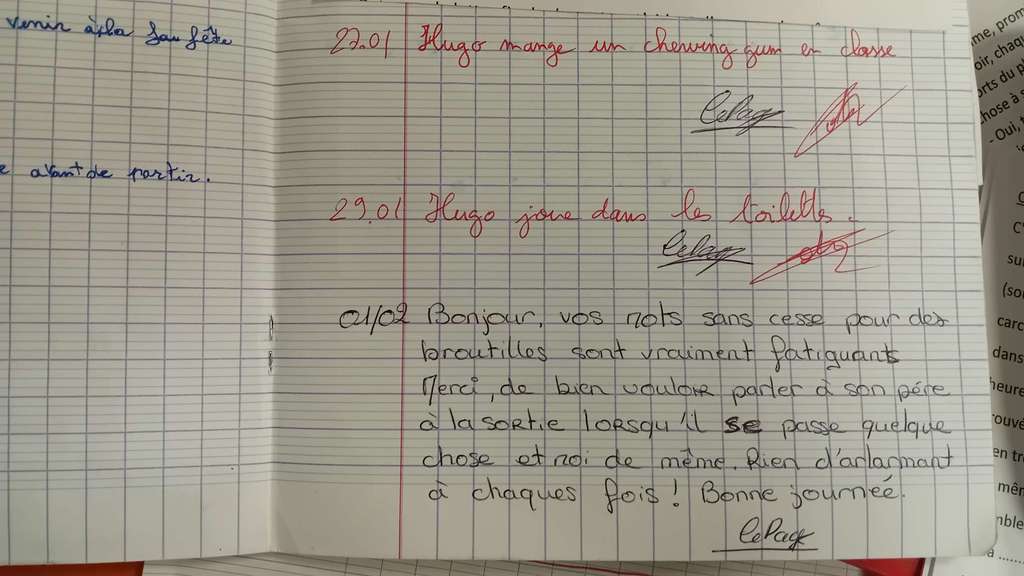 venir à la
e avant de partir.
27.01 Hugo mange un chewing gum en classe
LePage
29.01 Hugo joue dans les toilettes.
LePage
01/02 Bonjour, vos mots sans cesse pour des
broutilles sont vraiment fatiguants
Merci, de bien vouloir parler à son père
à la sortie lorsqu'il se passe quelque
chose et moi de même. Rien d'arlarmant
à chaques fois ! Bonne journeé.
LePage
me, prom
oir, chaqu
rts du p
hose à s
- Oui, t
C'
sui
(so
carc
dans
heure
ouvé
en tr
mêm
nble
à ......